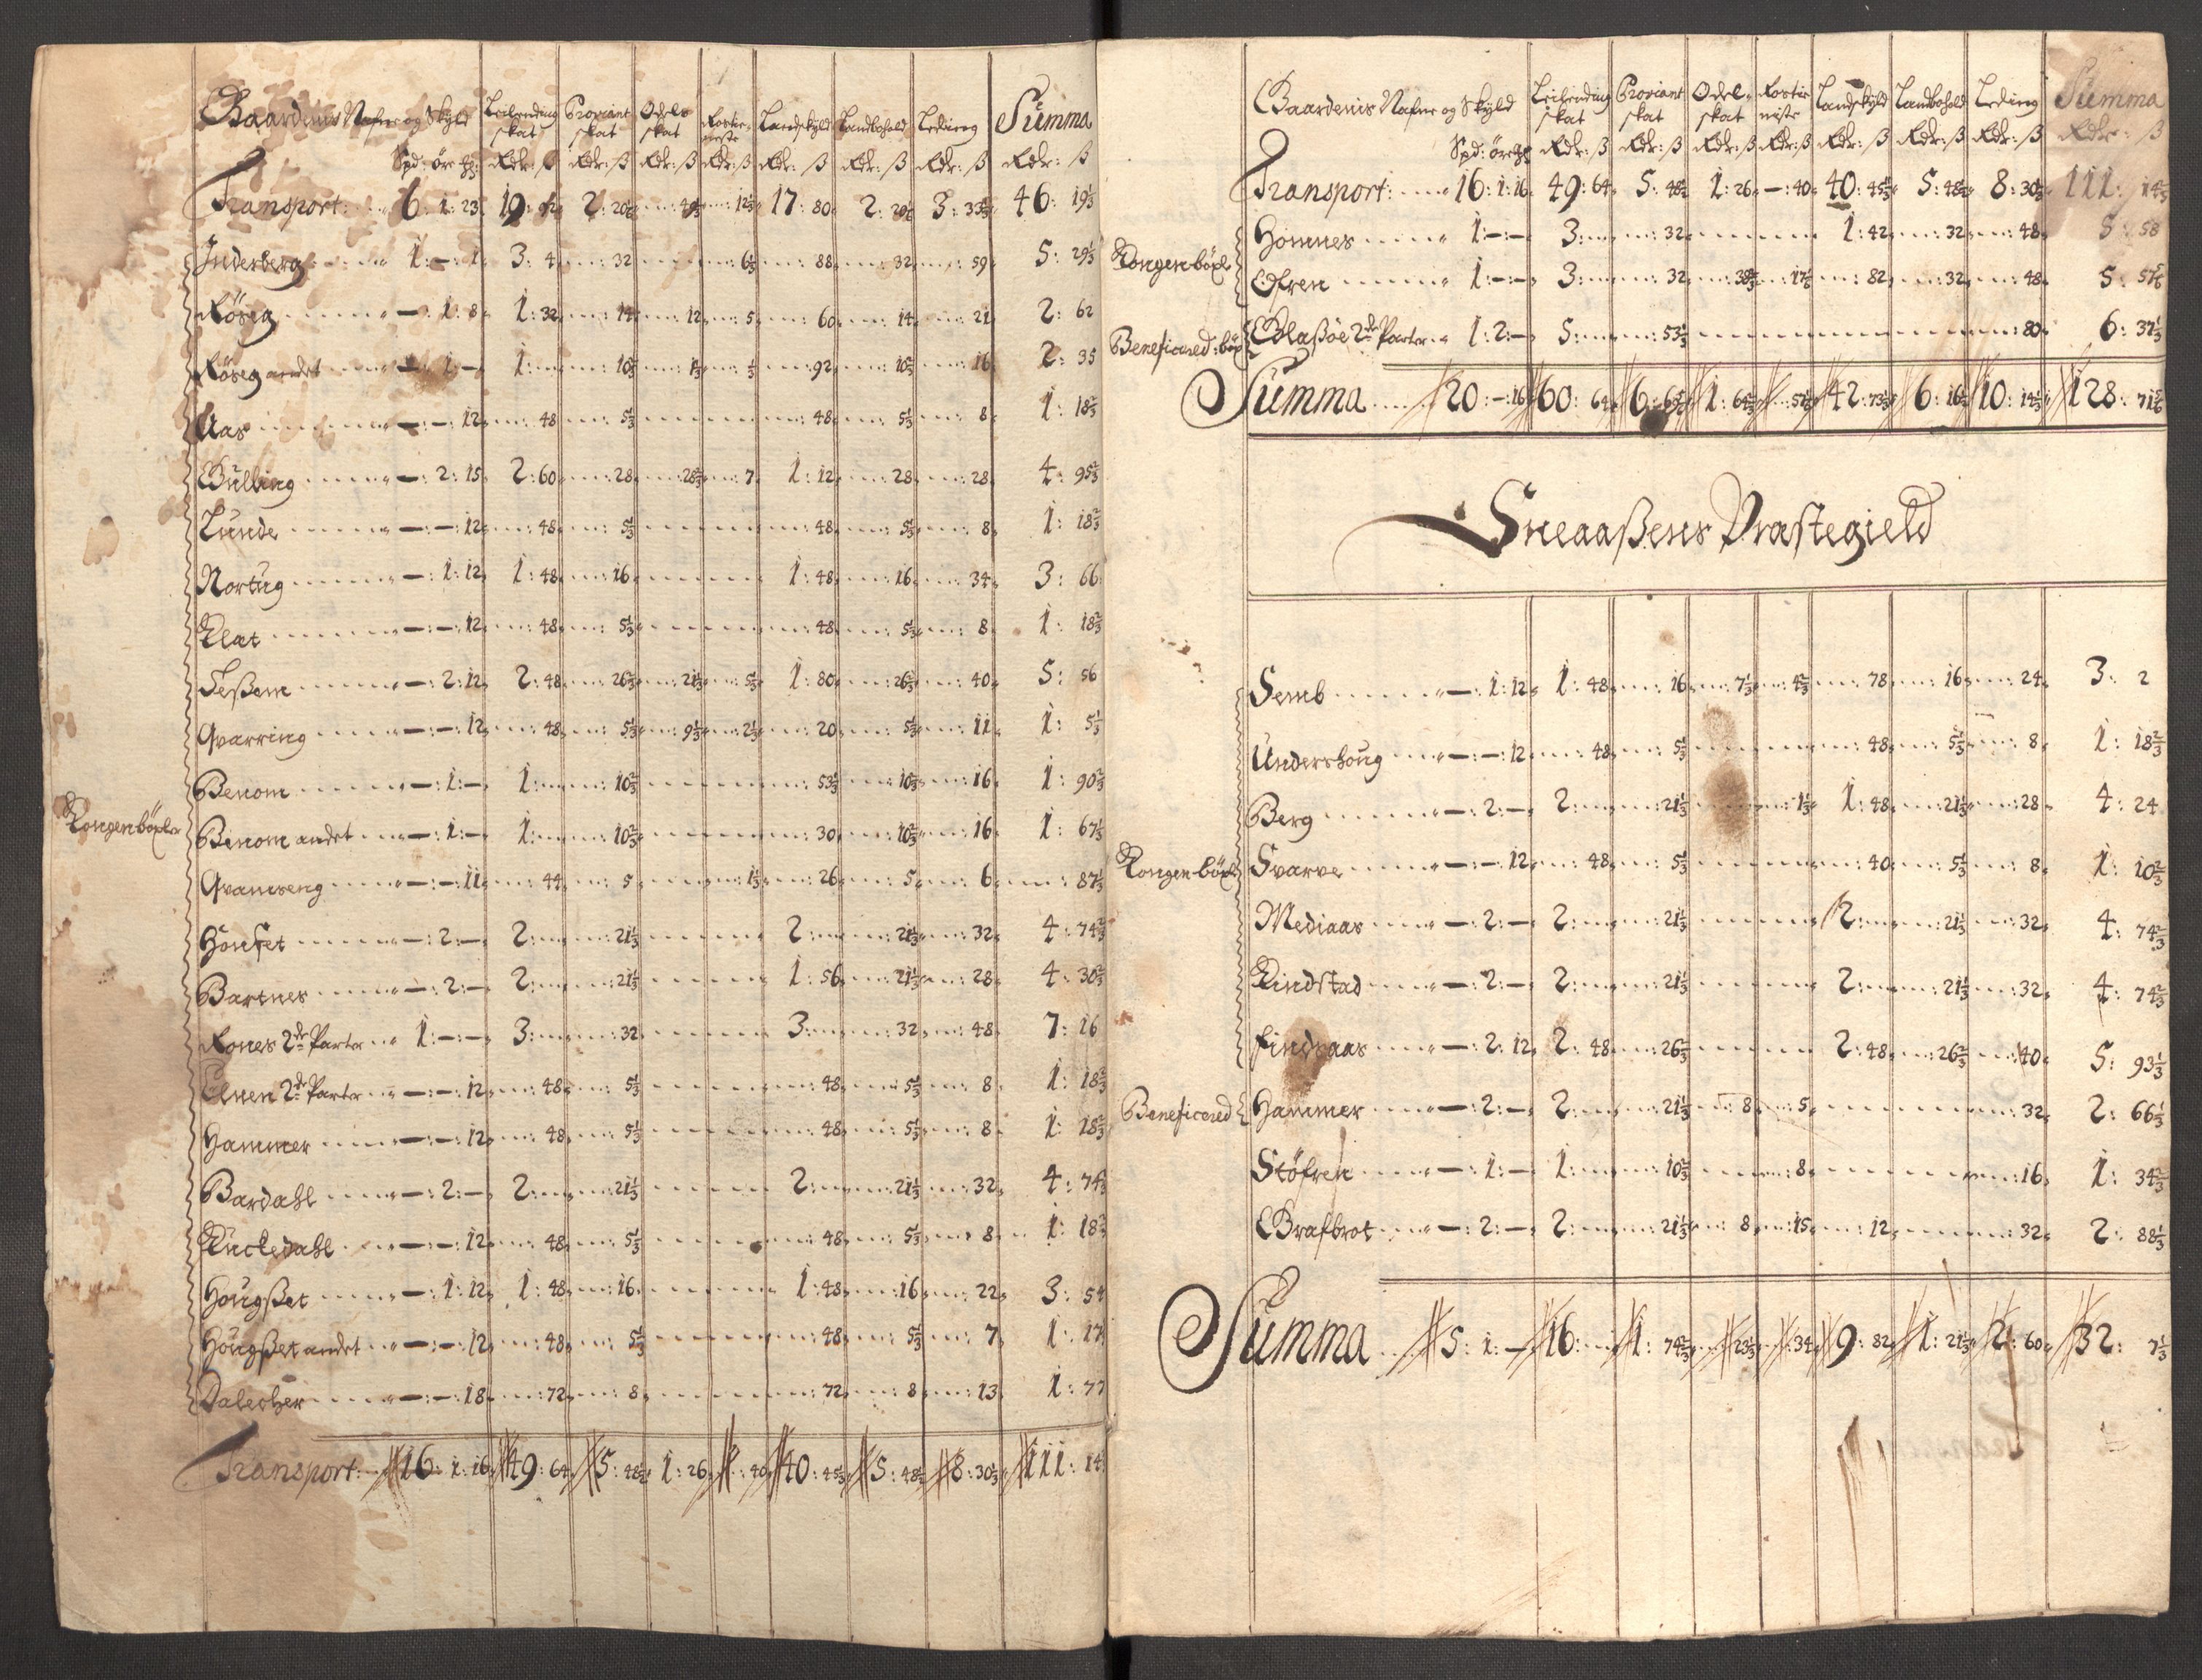 Gaardenis Nafne og Skyld Leilending skat Proviant skat Odels skat Rostie- neste Landskyld Landbohold Leding Summa
Spd: ör: Rdr: ß Rdr: ß Rdr: ß Rdr: ß Rdr: ß Rdr: ß Rdr: ß Rdr: ß
Transport: 6: 1: 23 19: 2: 12⅓ 17: 80 2: 3: 46: 19⅓
Inderberg 1: –: 1 3: 4 32 6⅓ 88 32 59 5: 29⅓
Röseg –: 1: 8 1: 32 14 12 5 60 14 21 2: 62
Röseg andet –: 1: – 1: 10⅔ 92 10⅔ 16 2: 35
Aas –: –: 12 48 5⅓ 48 5⅓ 8 1: 18⅔
Bulling –: 2: 15 2: 60 28 28⅔ 7 1: 12 28 28 4: 95⅔
Lunde –: –: 12 48 5⅓ 48 5⅓ 8 1: 18⅔
Nortug –: 1: 12 1: 48 16 1: 48 16 34 3: 66
Klat –: –: 12 48 5⅓ 48 5⅓ 8 1: 18⅔
Leßem –: 2: 12 2: 48 26⅔ 21⅓ 5⅓ 1: 80 26⅔ 40 5: 56
Qvarring –: –: 12 48 5⅓ 9⅓ 2⅓ 20 5⅓ 11 1: 5⅓
Benom –: 1: – 1: 10⅔ 53⅓ 10⅔ 16 1: 90⅔
Kongen böxler
Benom andet –: 1: – 1: 10⅔ 30 10⅔ 16 1: 67⅓
Qvamseng –: –: 11 44 5 1⅓ 26 5 6 87⅓
Hönset –: 2: – 2: 21⅓ 2: 21⅓ 32 4: 74⅔
Bartnes –: 2: – 2: 21⅓ 1: 56 21⅓ 28 4: 30⅔
Rones 2de Parter 1: –: – 3: 32 3: 32 48 7: 16
Elnen 2de Parter –: –: 12 48 5⅓ 48 5⅓ 8 1: 18⅔
Hammer –: –: 12 48 5⅓ 48 5⅓ 8 1: 18⅔
Bardahl –: 2: – 2: 21⅓ 2: 21⅓ 32 4: 74⅔
Kuckedahl –: –: 12 48 5⅓ 48 5⅓ 8 1: 18⅔
Hougßet –: 1: 12 1: 48 16 1: 48 16 22 3: 54
Hougßet andet –: –: 12 48 5⅓ 48 5⅓ 7 1: 17
Dalecher –: –: 18 72 8 72 8 13 1: 77
Transport: 16: 1: 16 49: 64 5: 48½ 1: 26 40 40: 45⅓ 5: 48½ 8: 30⅓ 111: 14
Gaardenis Nafne og Skyld Leilending skat Proviant skat Odel- skat Rostie neste Landskyld Landbohold Leding Summa
Spd: ör Rdr: ß Rdr: ß Rdr: ß Rdr: ß Rdr: ß Rdr: ß Rdr: ß Rdr: ß
Transport: 16: 1: 16 49: 64 5: 48½ 1: 26 –: 40 40: 45⅓ 5: 48½ 8: 30⅓ 111: 14
Homnes 1: –: – 3: 32 1: 42 32 48 5: 58
Kongen böxl
Ofren 1: –: – 3: 32 38⅔ 17⅙ 82 32 48 5: 57⅚
Beneficered: böx Olaßöe 2de Parter 1: 2: – 5: 53⅓ 80 6: 37⅓
Summa 20: –: 16 60: 64 6: 1: 64⅔ 42: 73⅓ 6: 16½ 10: 14⅓ 128: 71⅚
Sneaaßens Præstegield
Semb –: 1: 12 1: 48 16 7⅓ 4⅔ 78 16 24 3: 2
Undershoug –: –: 12 48 5⅓ 48 5⅓ 8 1: 18⅔
Berg –: 2: – 2: 21⅓ 1⅓ 1: 48 21⅓ 28 4: 24
Kongen böxl Svarve –: –: 12 48 5⅓ 40 5⅓ 8 1: 10⅔
Mediaas –: 2: – 2: 21⅓ 2: 21⅓ 32 4: 74⅔
Kindstad –: 2: – 2: 21⅓ 2: 21⅓ 32 4: 74⅔
Findsaas –: 2: 12 2: 48 26⅔ 2: 48 26⅔ 40 5: 93⅓
Beneficered Hammer –: 2: – 2: 21⅓ 8 5 32 2: 66⅓
Stöfren –: 1: – 1: 10⅔ 8 16 1: 34⅔
Brafbrot –: 2: – 2: 21⅓ 8 15 12 32 2: 88⅓
Summa 5: 1: – 16: 1: 74⅔ 23⅓ 34 9: 82 1: 21⅓ 2: 60 32: 7⅓